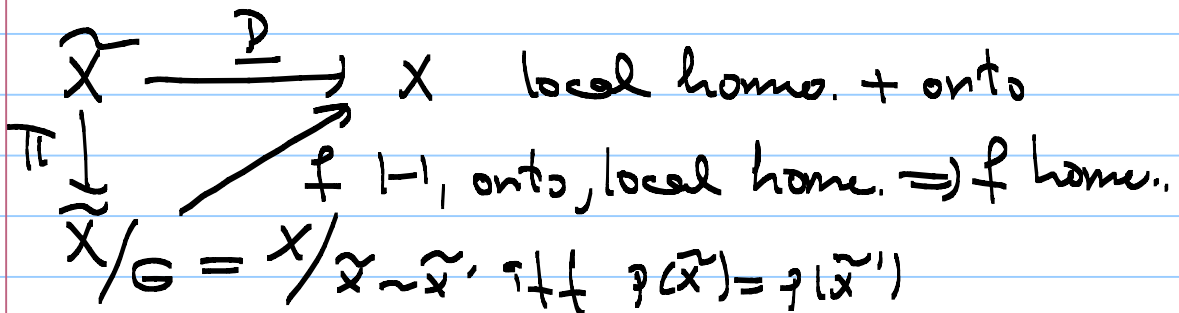 X̃ —p→ X local homeo. + onto
π ↓ ↗ f 1-1, onto, local home. ⇒ f home..
X̃/G = X/x̃~x̃' iff p(x̃)=p(x̃')